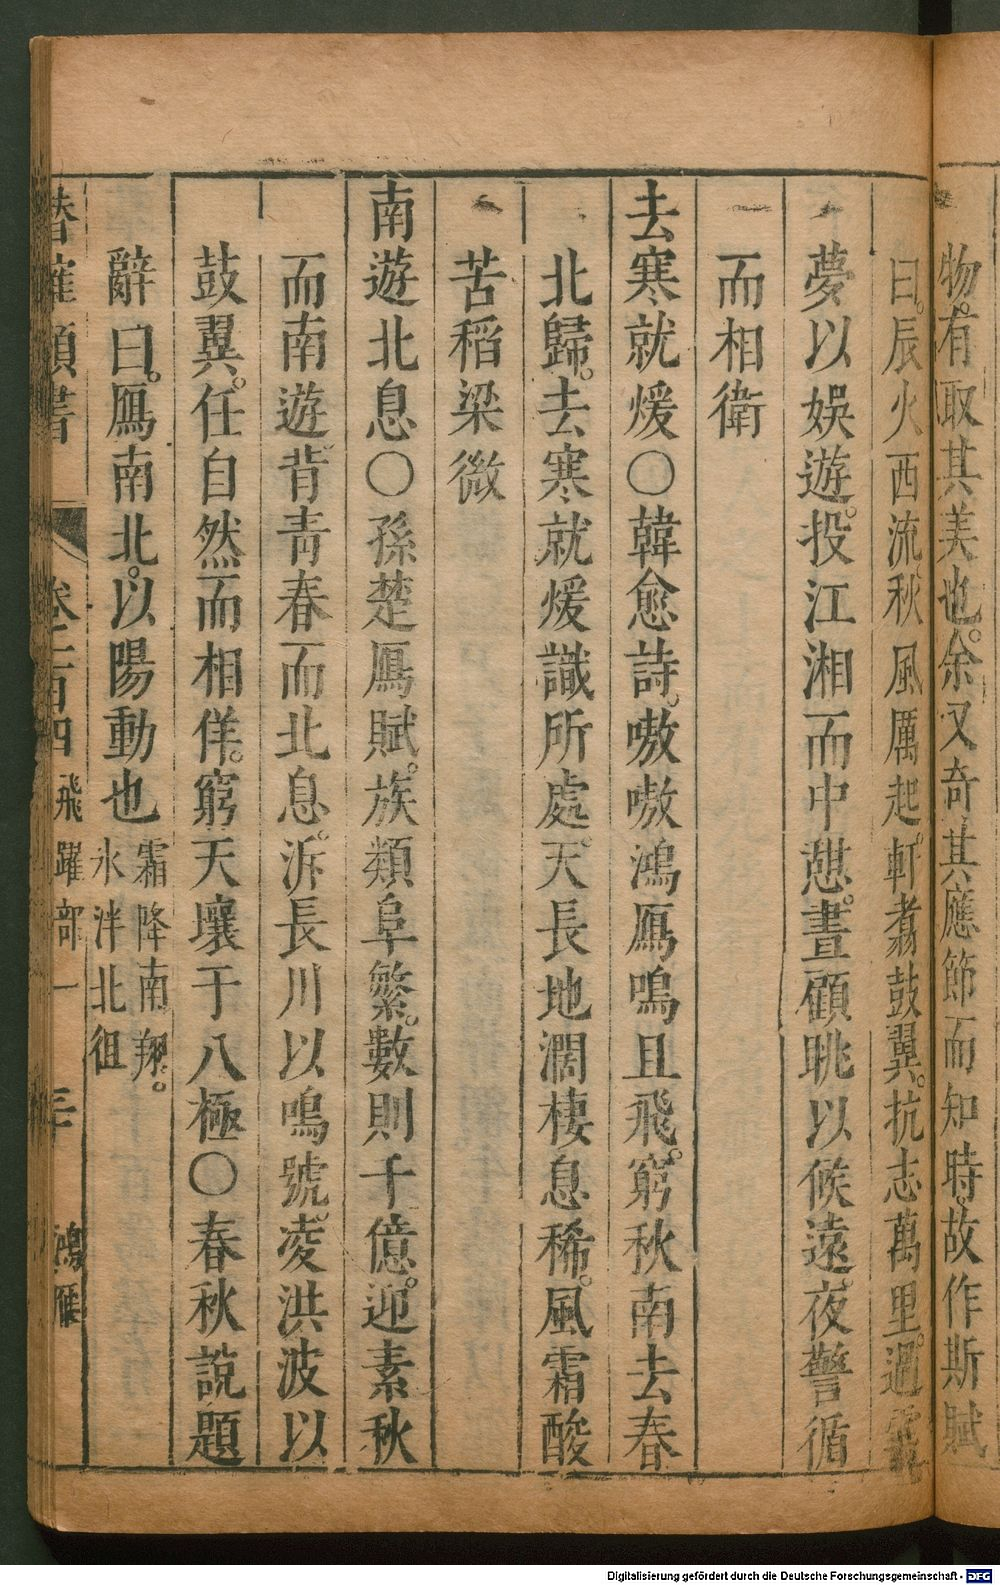 物。有取其美也。余又奇其應節而知時。故作斯賦
曰。辰火西流。秋風厲起。軒翥鼓翼。抗志萬里。過雲
夢以娛遊。投江湘而中憩。晝顧眺以候遠。夜警循
而相衛
去寒就煖〇韓愈詩。嗷嗷鴻鴈鳴且飛。窮秋南去春
北歸。去寒就煖識所處。天長地濶棲息稀。風霜酸
苦稻梁微
南遊北息〇孫楚鴈賦。族類阜繁。數則千億。迎素秋
而南遊。背青春而北息。泝長川以鳴號。凌洪波以
鼓翼。任自然而相佯。窮天壤于八極〇春秋說題
辭曰。鴈南北。以陽動也霜降南翔。氷泮北徂
潛確類書 卷一百四 飛躍部一 三十 鴻雁
Digitalisierung gefördert durch die Deutsche Forschungsgemeinschaft - DFG